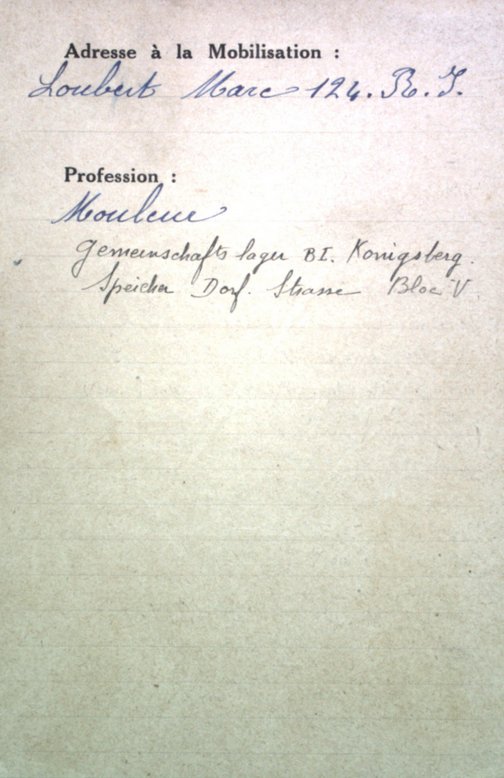 Adresse à la Mobilisation :
Loubert Marc 124. R. I.
Profession :
Mouleur
Gemeinschafts lager BI. Konigsberg.
Speicher Dorf. Strasse Bloc V